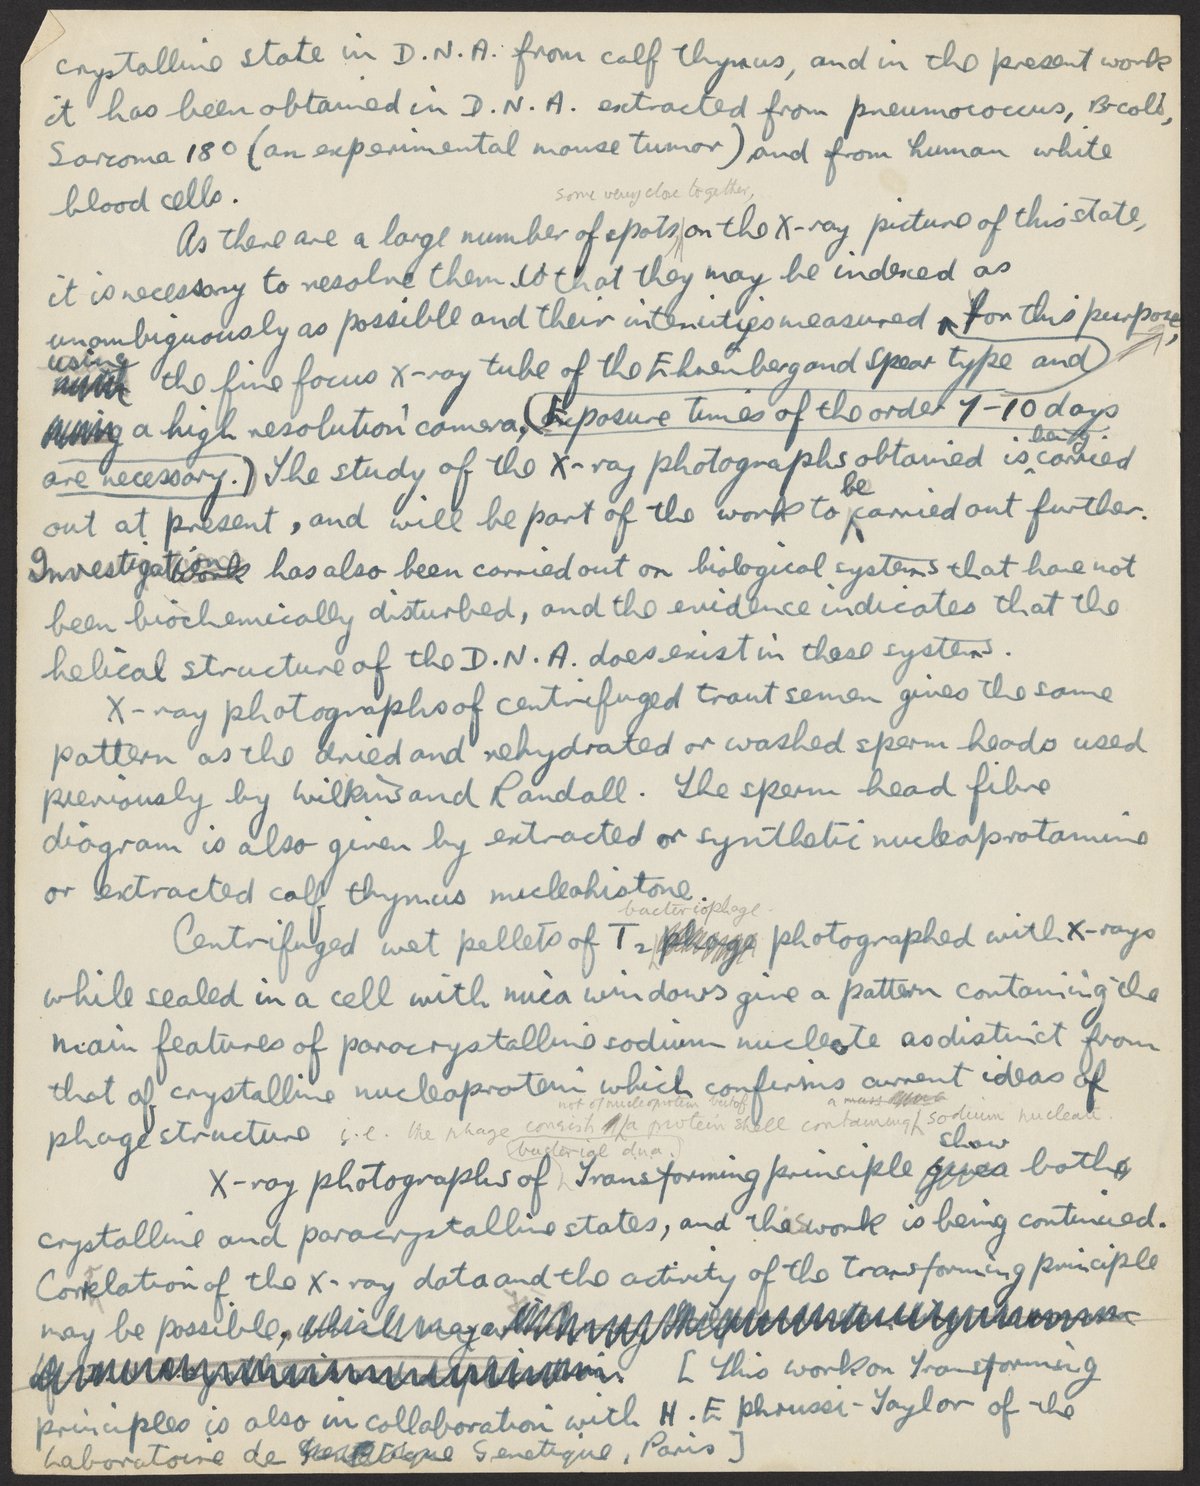 crystalline state in D.N.A. from calf thymus, and in the present work
it has been obtained in D.N.A. extracted from pneumococcus, B-coli,
Sarcoma 180 (an experimental mouse tumor) and from human white
blood cells.
some very close together,
As there are a large number of spots on the X-ray picture of this state,
it is necessary to resolve them so that they may be indexed as
unambiguously as possible and their intensities measured for this purpose,
using
the fine focus X-ray tube of the Ehrenberg and Spear type and
using a high resolution camera, (Exposure times of the order 7-10 days
being
are necessary.) The study of the X-ray photographs obtained is carried
be
out at present, and will be part of the work to carried out further.
Investigation work has also been carried out on biological systems that have not
been biochemically disturbed, and the evidence indicates that the
helical structure of the D.N.A. does exist in these systems.
X-ray photographs of centrifuged trout semen gives the same
pattern as the dried and rehydrated or washed sperm heads used
previously by Wilkins and Randall. The sperm head fibre
diagram is also given by extracted or synthetic nucleoprotamine
or extracted calf thymus nucleohistone.
bacteriophage
Centrifuged wet pellets of T2 phage photographed with X-rays
while sealed in a cell with mica windows give a pattern containing the
main features of paracrystalline sodium nucleate as distinct from
that of crystalline nucleoprotein which confirms current ideas of
not of nucleoprotein but of a mass
phage structure i.e. the phage consists a protein shell containing sodium nucleate.
bacterial dna. show
X-ray photographs of Transforming principle gives both
crystalline and paracrystalline states, and this work is being continued.
Correlation of the X-ray data and the activity of the transforming principle
may be possible, which may
[This work on Transforming
principles is also in collaboration with H. Ephrussi-Taylor of the
Laboratoire de Genetique, Paris]